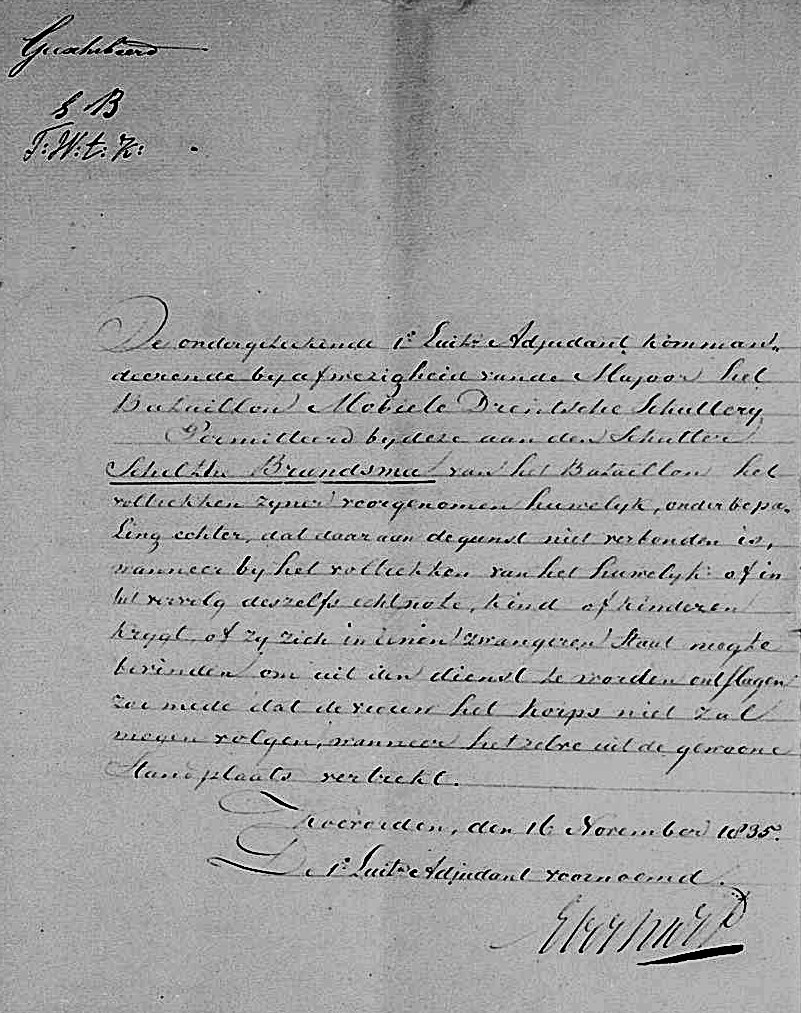 De ondergetekende 1e Luitt Adjudant komman„
deerende by afwezigheid van de Majoor het
Bataillon Mobiele Drentsche Schuttery
Permitteerd by deze aan den Schutter
Brandsma van het Bataillon het
voltrekken zyner voorgenomen huwelyk, onder bepa„
ling echter, dat daar aan de gunst niet verbonden is,
wanneer by het voltrekken van het huwelyk of in
het vervolg deszelfs echtnote, kind of kinderen
krygt, of zy zich in eenen zwangeren Staat mogte
bevinden om uit den dienst te worden ontslagen
zoo mede dat de vrouw het korps niet zal
mogen volgen, wanneer hetzelve uit de gewoone
Standplaats vertrekt.
Koevorden, den 16 November 1835.
De 1e Luitt Adjudant voornoemd.